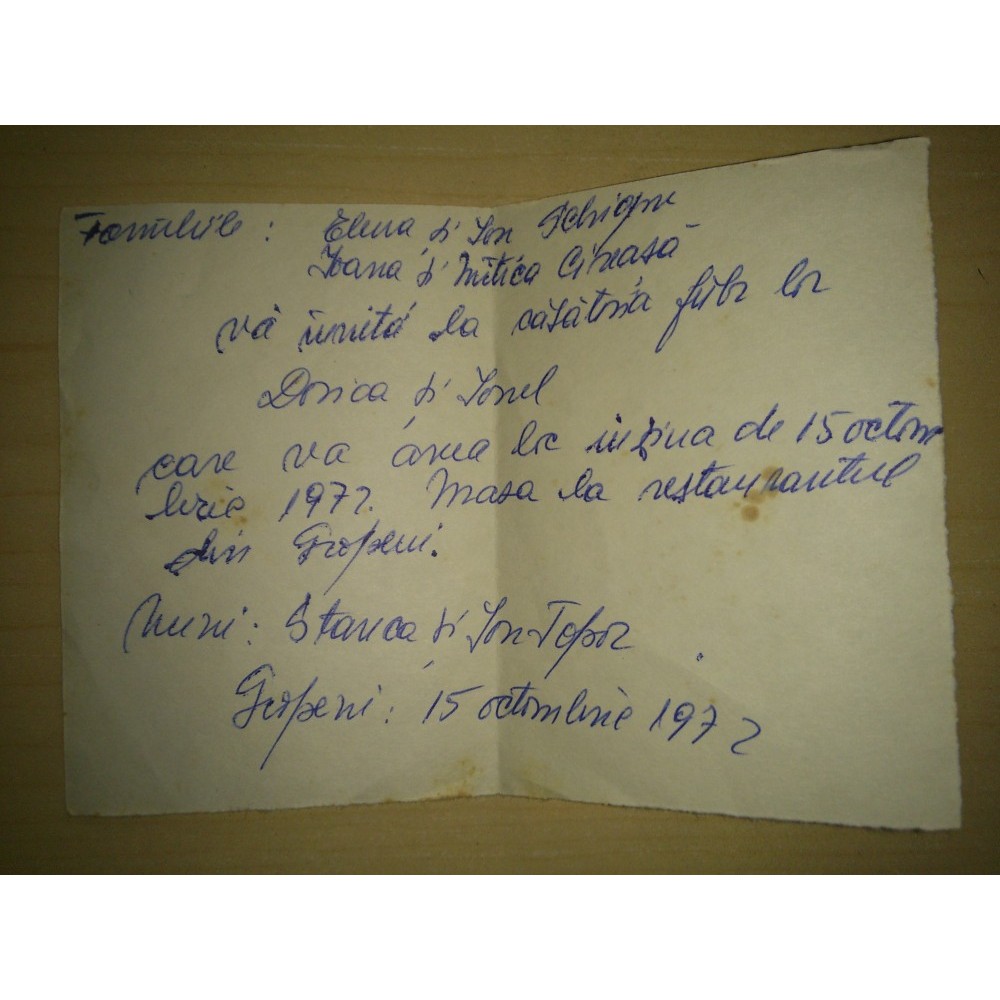 Familiile: Elena și Ion
Ioana și Mitică Cireașă
vă invită la căsătoria fiilor lor
Dorica și Ionel
care va avea loc în ziua de 15 octom
brie 1972. Masa la restaurantul
din Gropeni.
Nuni: Stanca și Ion Topor
Gropeni: 15 octombrie 1972